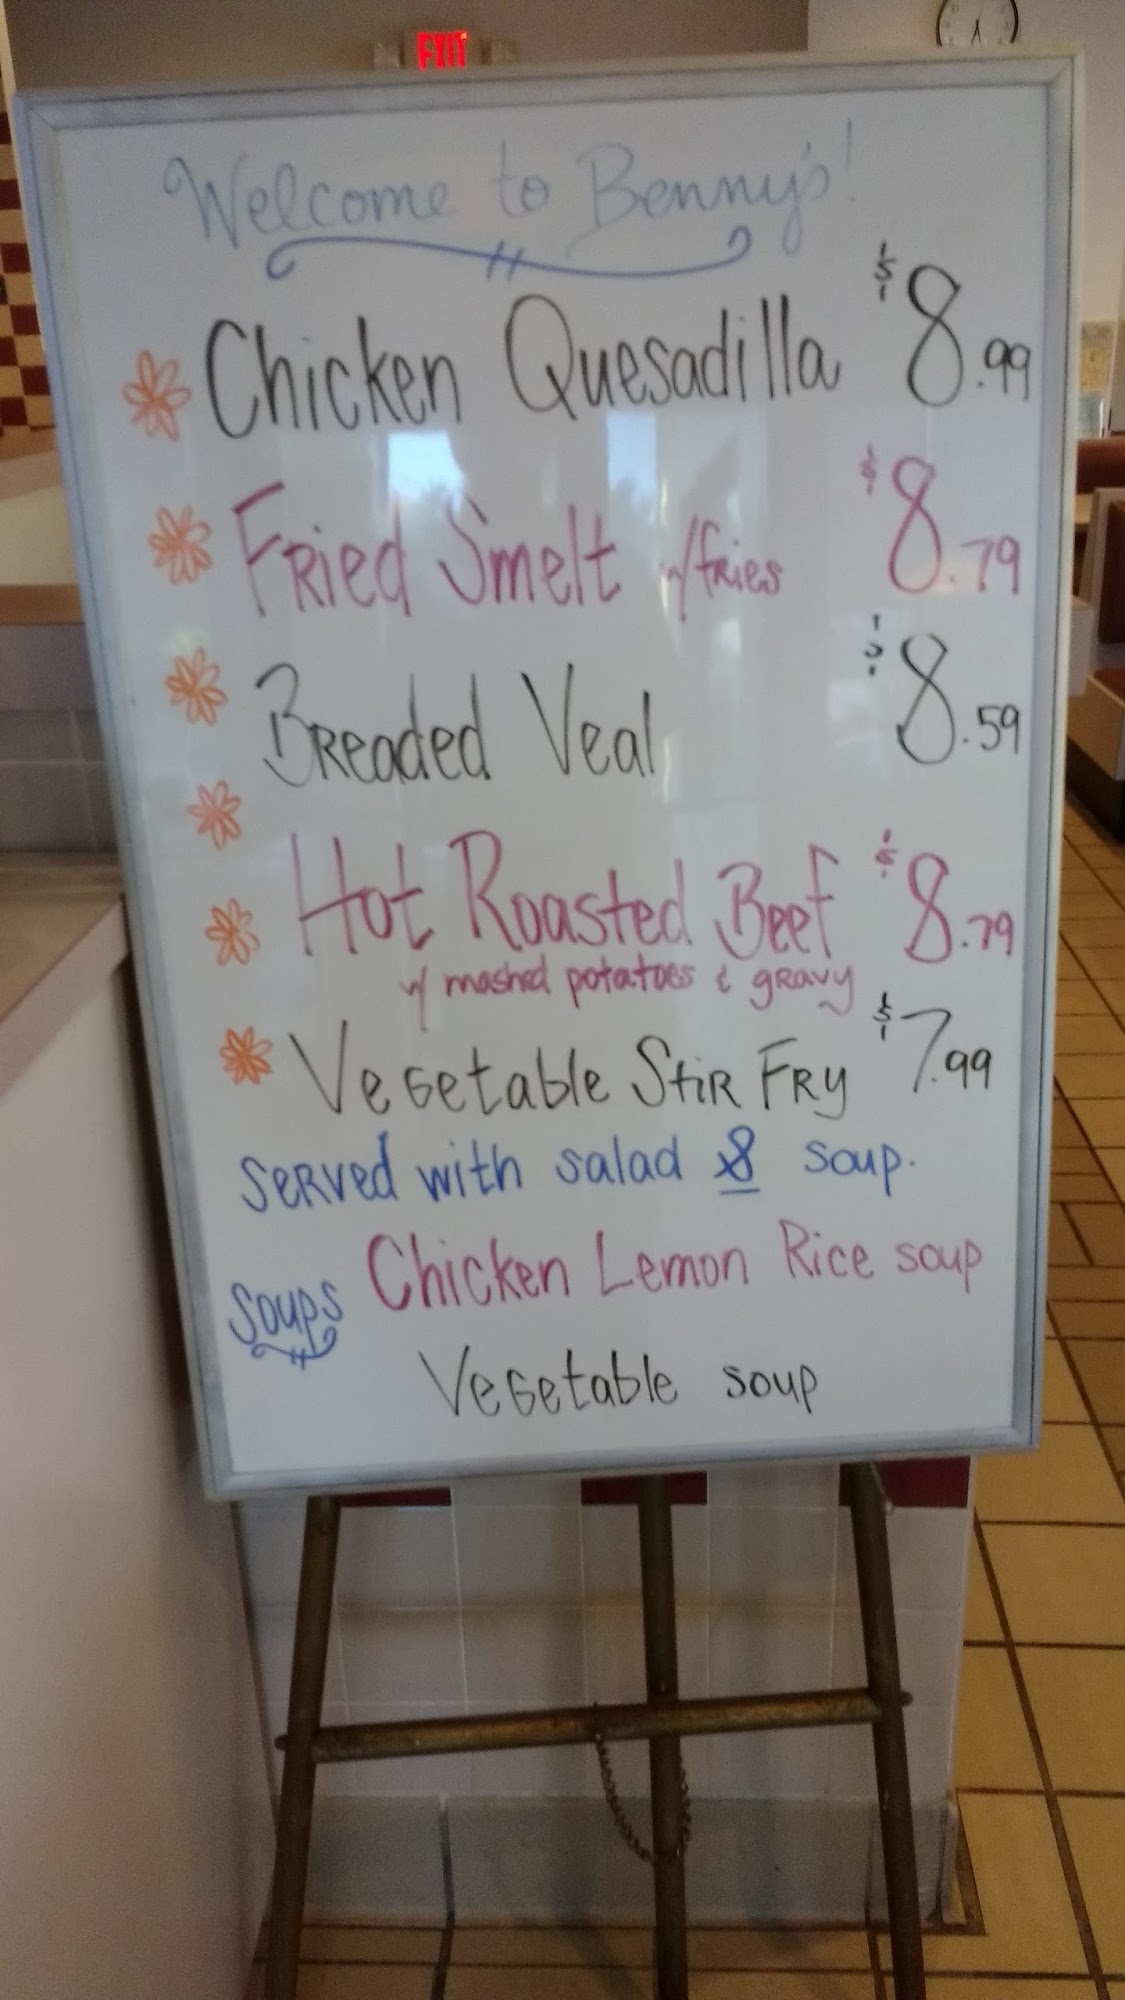 EXIT
Welcome to Benny's!
Chicken Quesadilla $8.99
Fried Smelt w/fries $8.79
Breaded Veal $8.59
Hot Roasted Beef $8.79
w/ mashed potatoes & gravy
Vegetable Stir Fry $7.99
Served with salad & soup.
Soups Chicken Lemon Rice soup
Vegetable soup